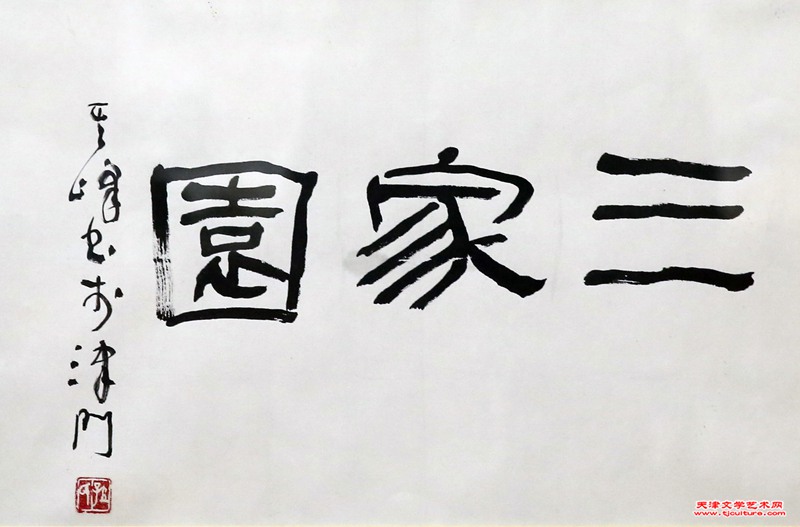 三家園
其峰书於津门
天津文学艺术网
www.tjculture.com